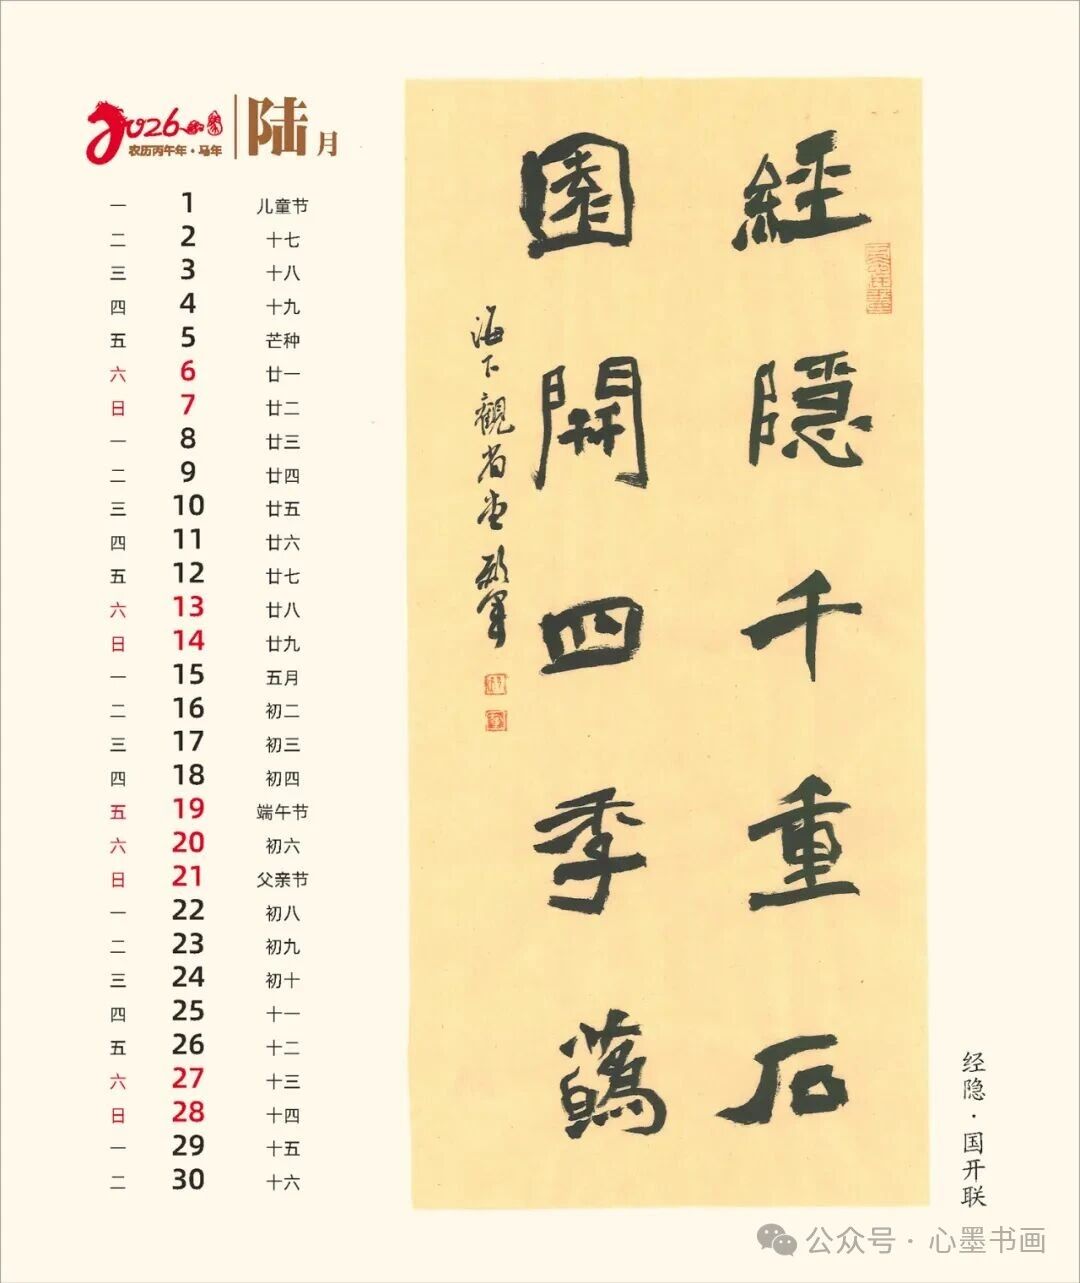 2026
农历丙午年·马年
陆月
一 1 儿童节
二 2 十七
三 3 十八
四 4 十九
五 5 芒种
六 6 廿一
日 7 廿二
一 8 廿三
二 9 廿四
三 10 廿五
四 11 廿六
五 12 廿七
六 13 廿八
日 14 廿九
一 15 五月
二 16 初二
三 17 初三
四 18 初四
五 19 端午节
六 20 初六
日 21 父亲节
一 22 初八
二 23 初九
三 24 初十
四 25 十一
五 26 十二
六 27 十三
日 28 十四
一 29 十五
二 30 十六
經隱千重石
園開四季蘤
海下觀省堂
经隐·国开联
公众号·心墨书画